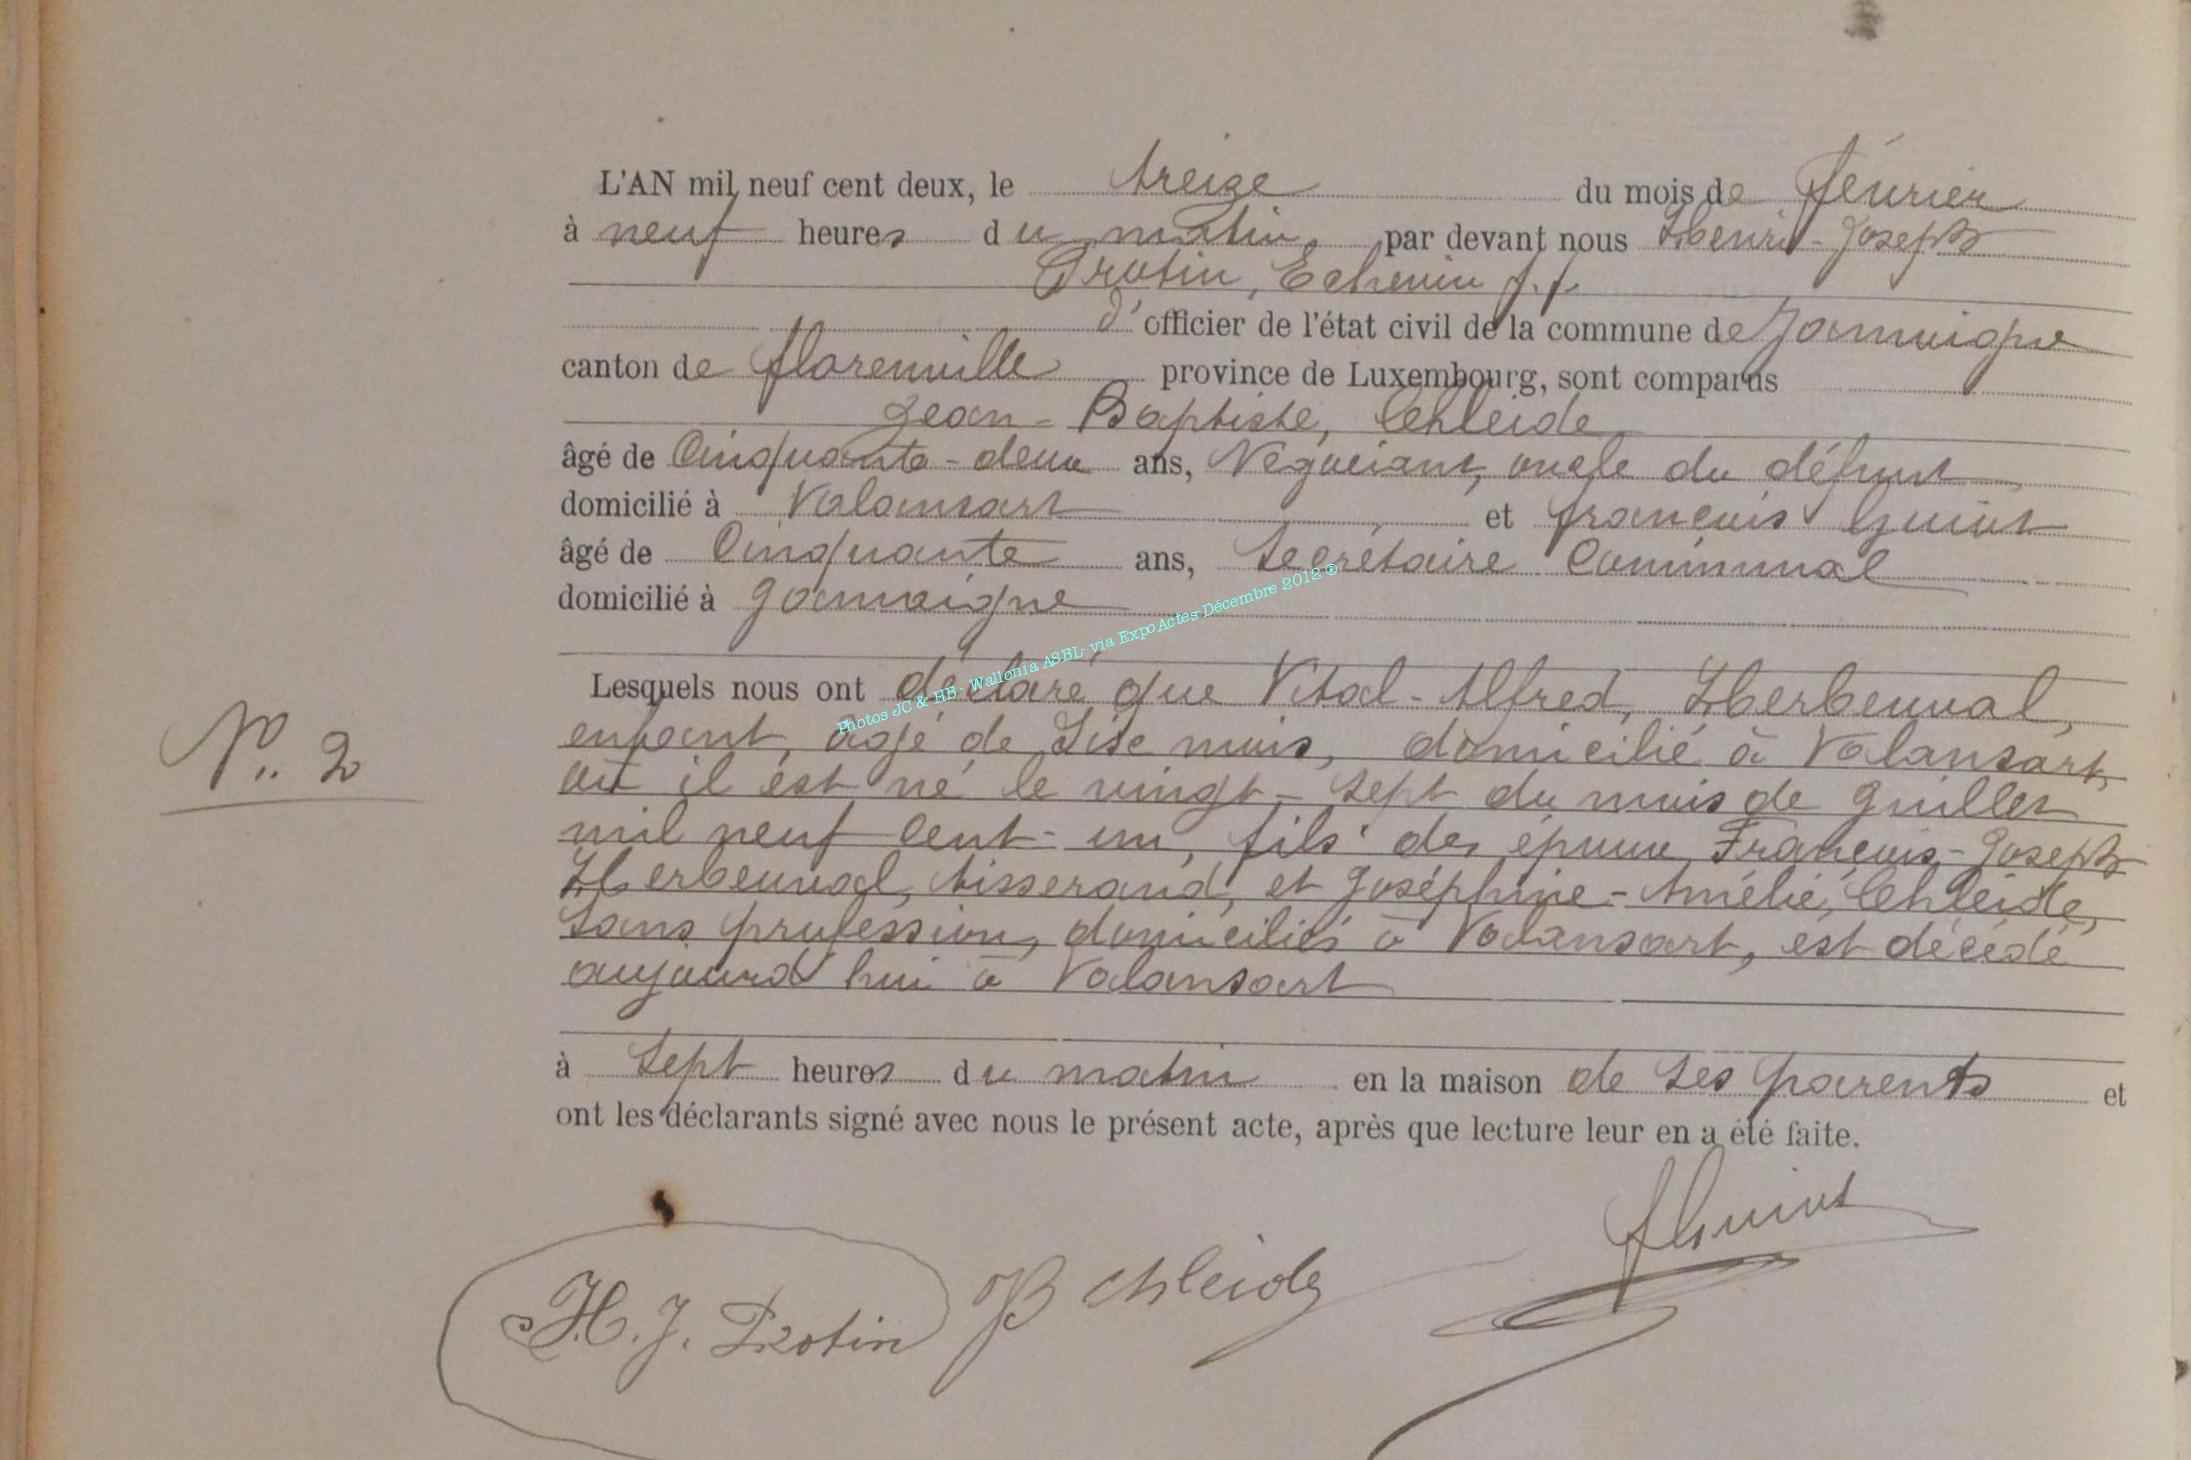 L'AN mil neuf cent deux, le treize du mois de février
à neuf heures du matin, par devant nous Henri-Joseph
Protin, Echevin f.f.
d'officier de l'état civil de la commune de Jamoigne
canton de florenville province de Luxembourg, sont comparus
Jean-Baptiste, Chleide
âgé de Cinquante-deux ans, Négociant, oncle du défunt
domicilié à Valansart et françois Guiot
âgé de Cinquante ans, Secrétaire Communal
domicilié à Jamoigne
Photos JC & HB - Wallonia ASBL- via ExpoActes Décembre 2012 ©
Lesquels nous ont déclaré que Vital-Alfred, Herbeuval,
N°. 2
enfant, âgé de Six mois, domicilié à Valansart,
où il est né le vingt-sept du mois de Juillet
mil neuf Cent-un, fils des époux François-Joseph
Herbeuval, tisserand, et Joséphine-Amélie, Chleide,
Sans profession, domiciliés à Valansart, est décédé
aujourd'hui à Valansart
à Sept heures du matin en la maison de Ses parents et
ont les déclarants signé avec nous le présent acte, après que lecture leur en a été faite.
H. J. Protin JB chleide fGuiot